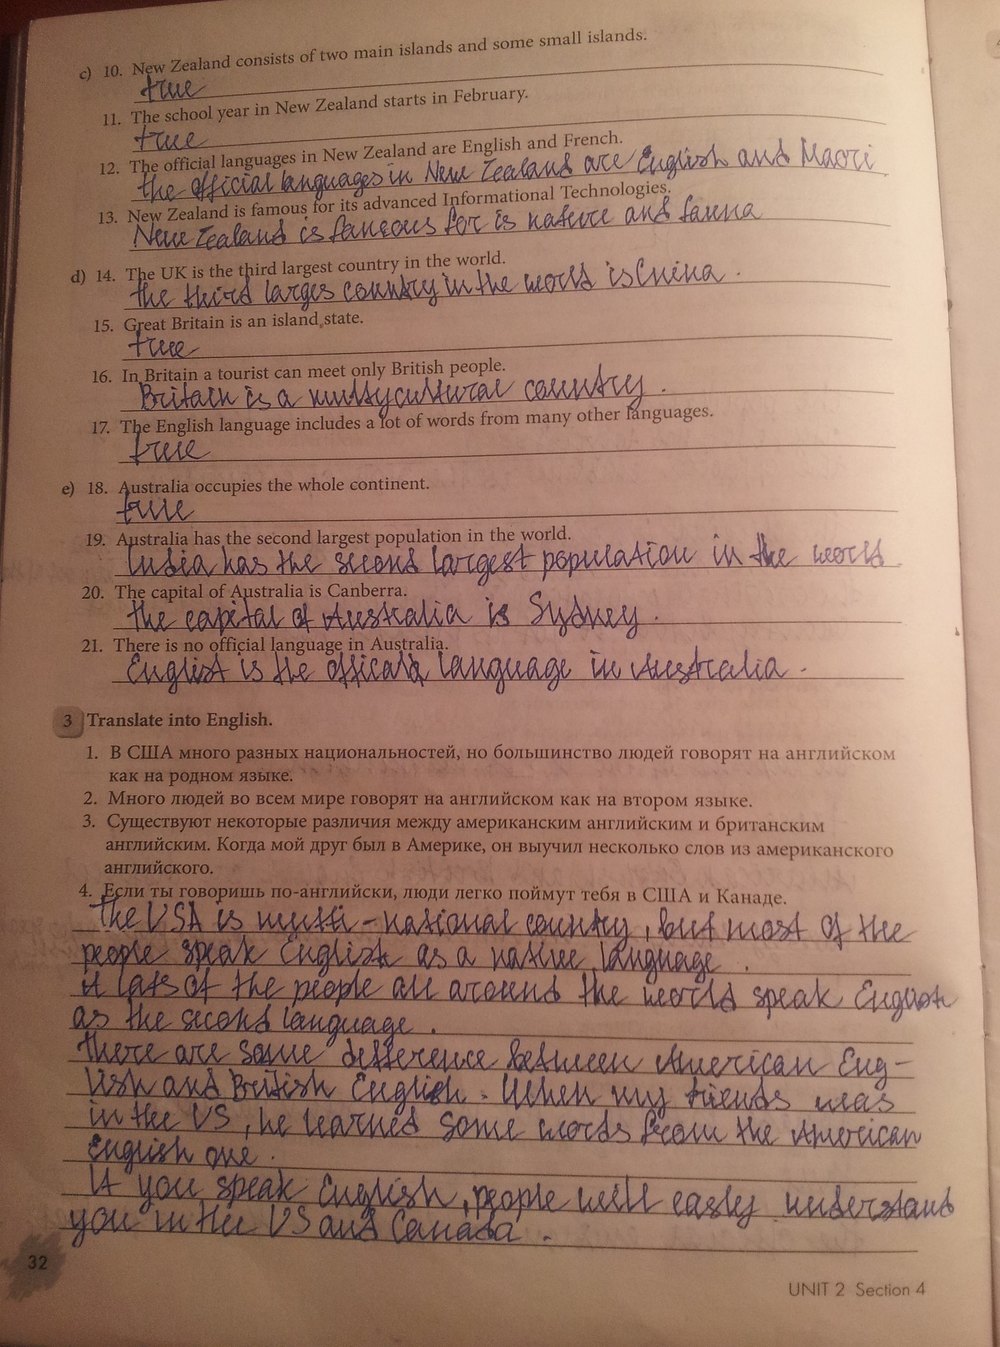 c) 10. New Zealand consists of two main islands and some small islands.
true
11. The school year in New Zealand starts in February.
true
12. The official languages in New Zealand are English and French.
the official languages in New Zealand are English and Maori
13. New Zealand is famous for its advanced Informational Technologies.
New Zealand is famous for is nature and fauna
d) 14. The UK is the third largest country in the world.
the third larges country in the world is China.
15. Great Britain is an island state.
true
16. In Britain a tourist can meet only British people.
Britain is a multycultural country.
17. The English language includes a lot of words from many other languages.
true
e) 18. Australia occupies the whole continent.
true
19. Australia has the second largest population in the world.
India has the second largest population in the world.
20. The capital of Australia is Canberra.
the capital of Australia is Sydney.
21. There is no official language in Australia.
English is the official language in Australia.
3 Translate into English.
1. В США много разных национальностей, но большинство людей говорят на английском
как на родном языке.
2. Много людей во всем мире говорят на английском как на втором языке.
3. Существуют некоторые различия между американским английским и британским
английским. Когда мой друг был в Америке, он выучил несколько слов из американского
английского.
4. Если ты говоришь по-английски, люди легко поймут тебя в США и Канаде.
the USA is multi-national country, but most of the
people speak English as a native language.
lats of the people all around the world speak English
as the second language.
there are some difference between American Eng-
lish and British English. When my friends was
in the US, he learned some words from the American
English one.
If you speak English, people will easly understand
you in the US and Canada.
32
UNIT 2 Section 4